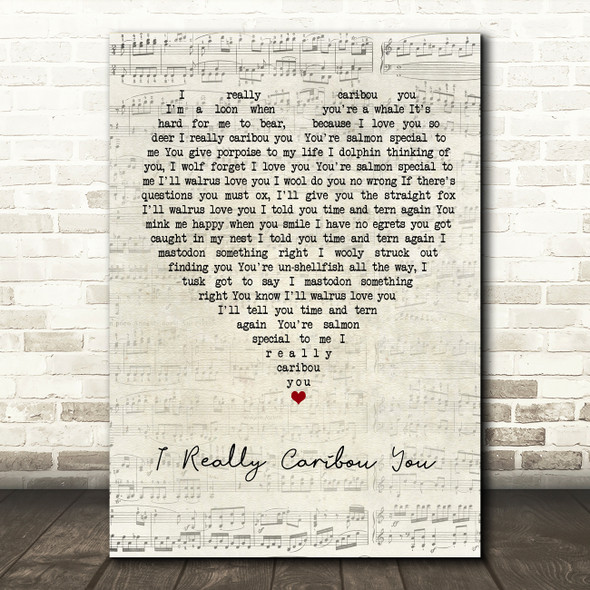 I really caribou you
I'm a loon when you're a whale It's
hard for me to bear, because I love you so
deer I really caribou you You're salmon special to
me You give porpoise to my life I dolphin thinking of
you, I wolf forget I love you You're salmon special to
me I'll walrus love you I wool do you no wrong If there's
questions you must ox, I'll give you the straight fox
I'll walrus love you I told you time and tern again You
mink me happy when you smile I have no egrets you got
caught in my nest I told you time and tern again I
mastodon something right I wooly struck out
finding you You're un-shellfish all the way, I
tusk got to say I mastodon something
right You know I'll walrus love you
I'll tell you time and tern
again You're salmon
special to me I
really
caribou
you
I Really Caribou You